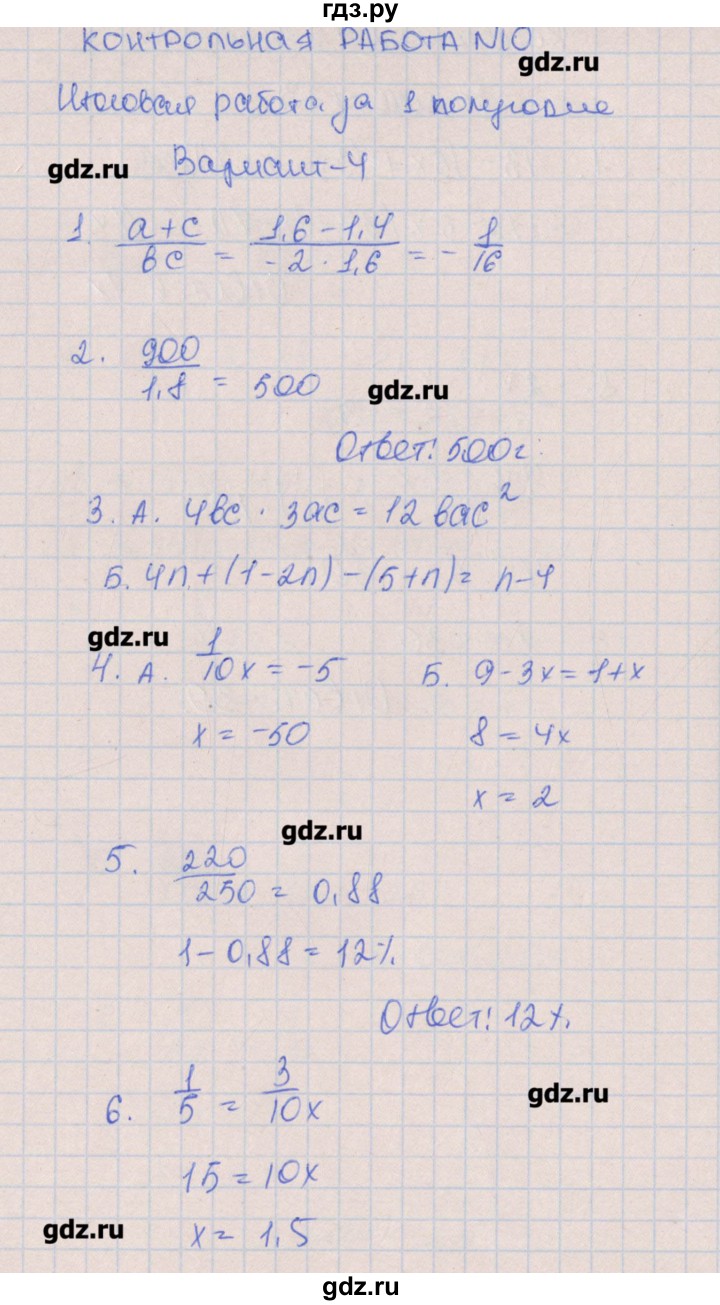 гдз.ру
КОНТРОЛЬНАЯ РАБОТА N10
gdz.ru
Итоговая работа за 1 полугодие
gdz.ru
Вариант-4
1. (a+c)/(bc) = (1,6-1,4)/(-2·1,6) = -1/16
2. 900/1,8 = 500
gdz.ru
Ответ: 500г
3. А. 4bc · 3ac = 12 bac²
Б. 4n+(1-2n)-(5+n)= n-4
gdz.ru
4. А. 1/10x = -5 Б. 9-3x=1+x
x = -50 8 = 4x
x = 2
gdz.ru
5. 220/250 = 0,88
1-0,88 = 12%
Ответ: 12%.
gdz.ru
6. 1/5 = 3/10x
15 = 10x
gdz.ru
x = 1,5
gdz.ru